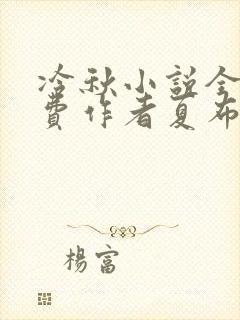 冷秋小説全
費作者夏布
楊富